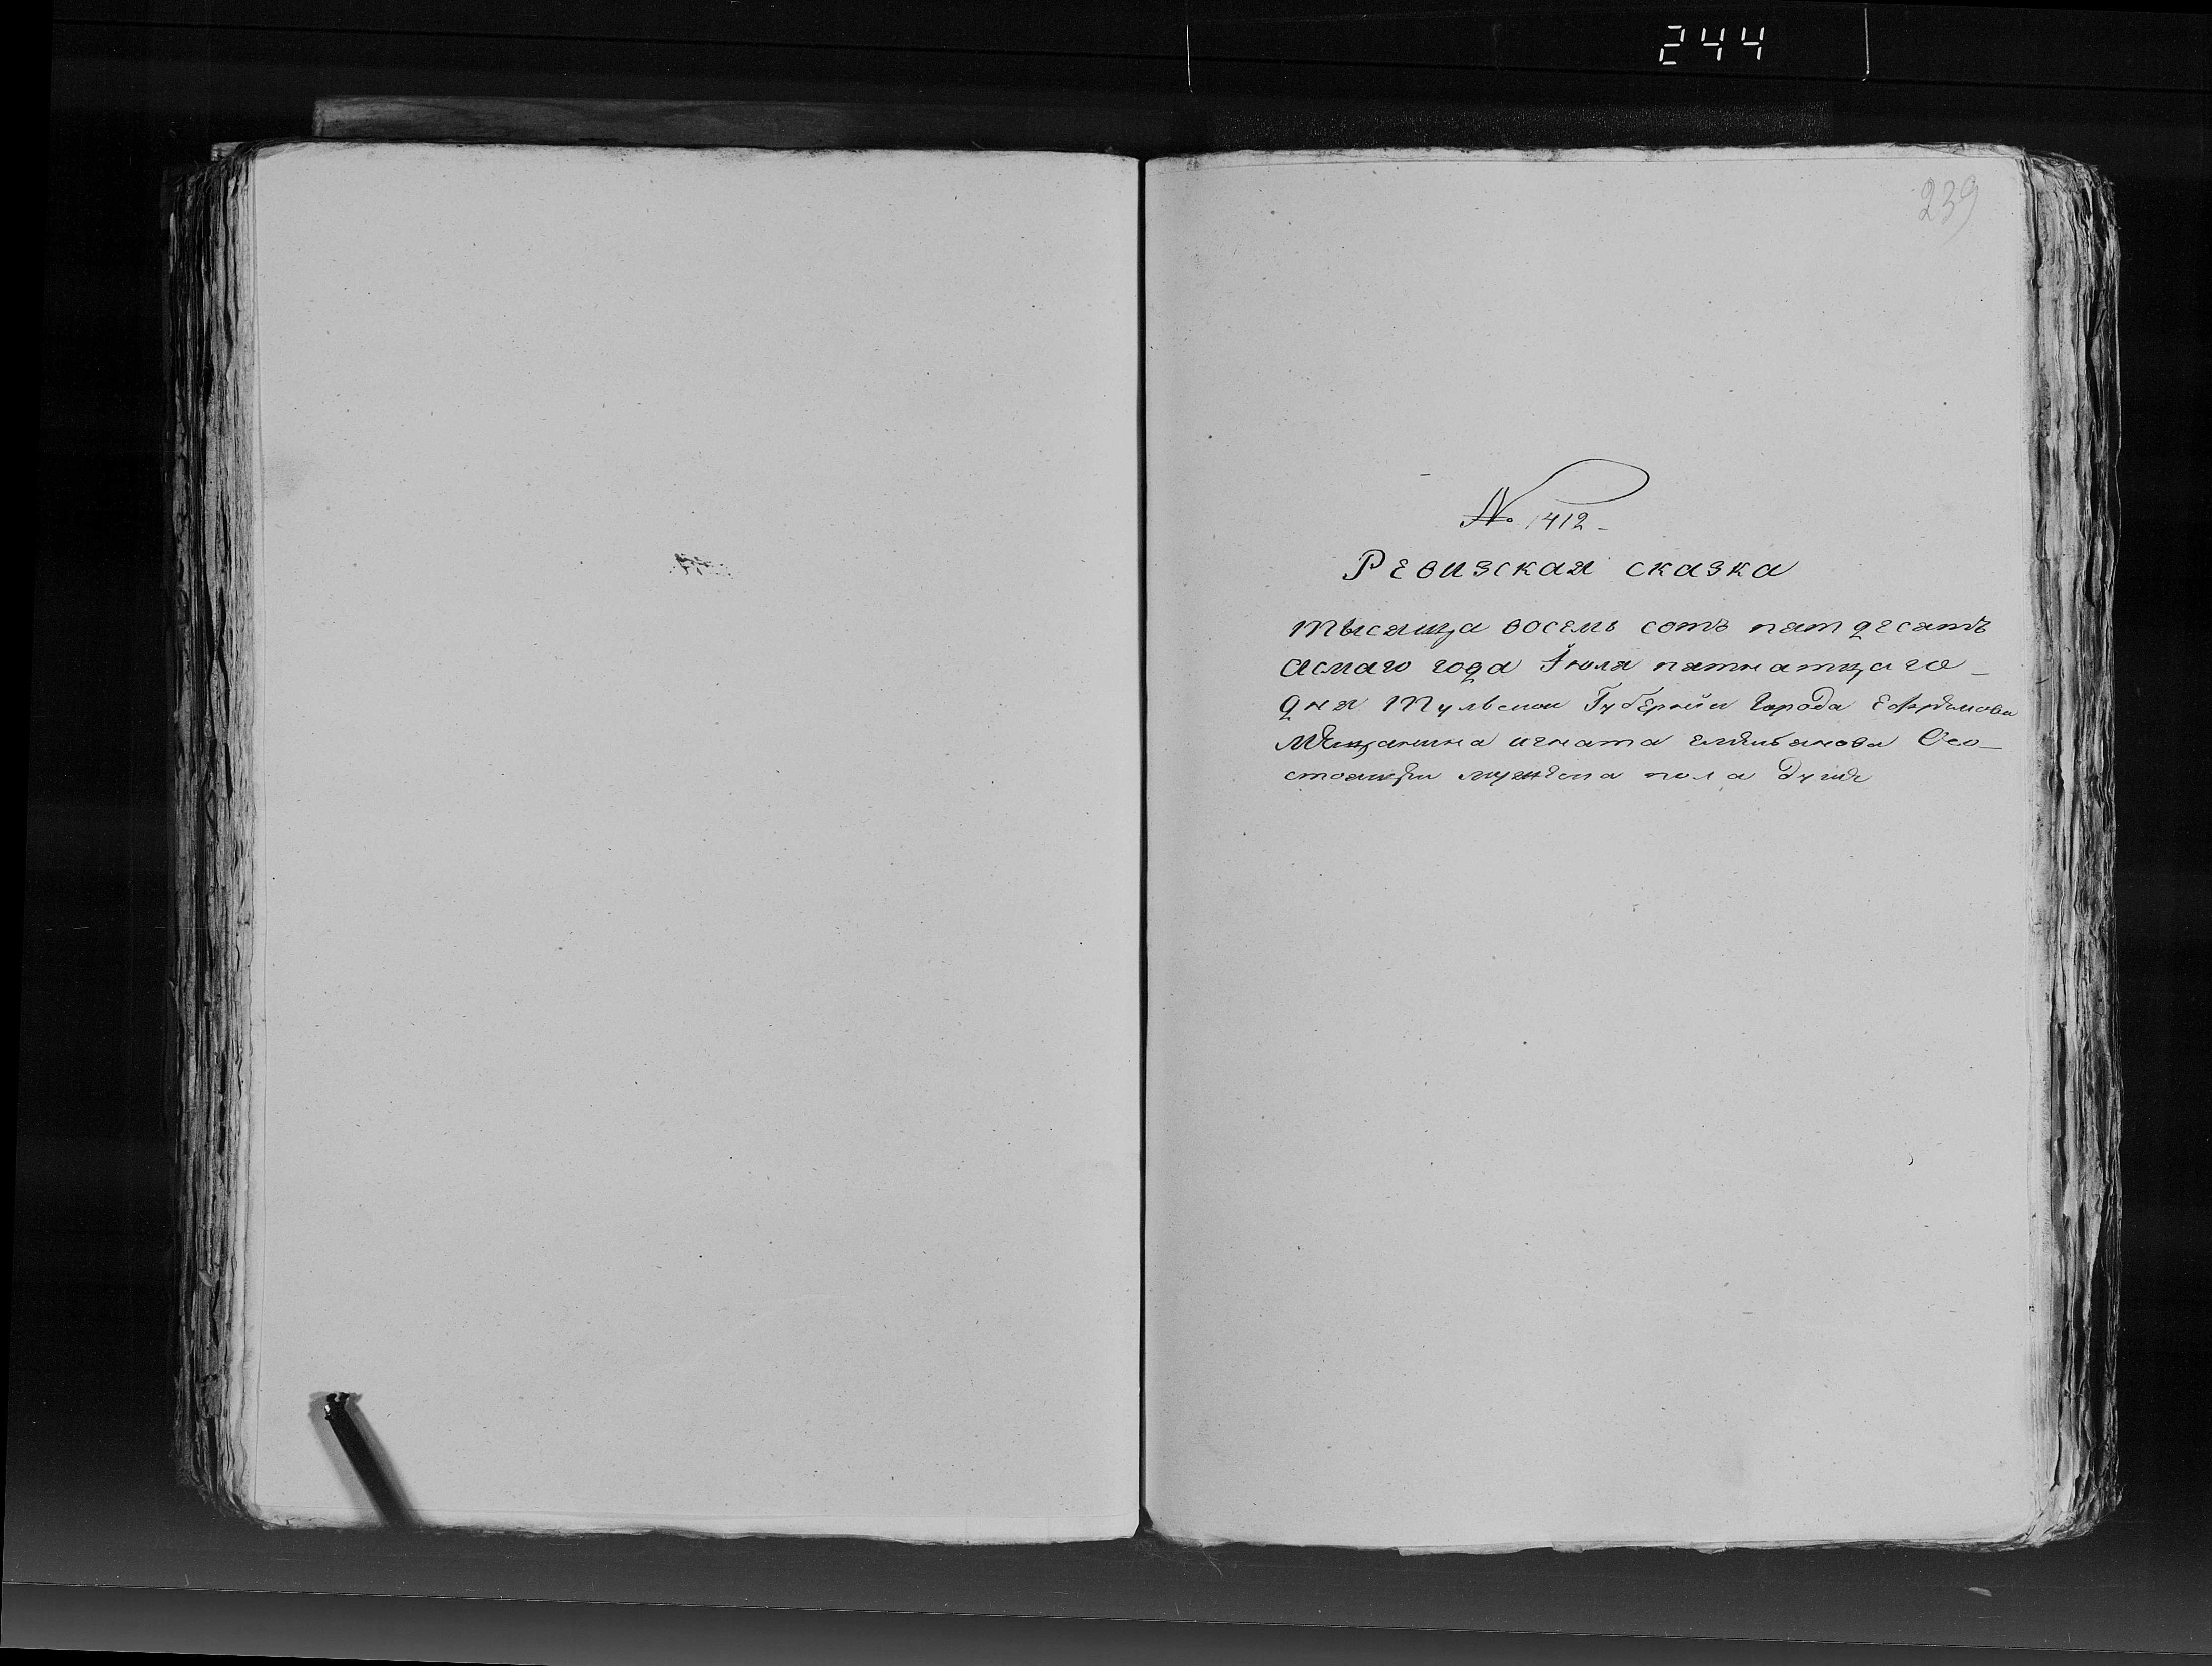 244
239
№ 1412
Ревизская сказка
тысяща восемь сотъ пятдесятъ
асмаго года Іюля пятнатцаго
дня Тульской Губернїи города Ефремова
Мещанина игната емельянова Осо-
стоящѣи мужеска пола душѣ